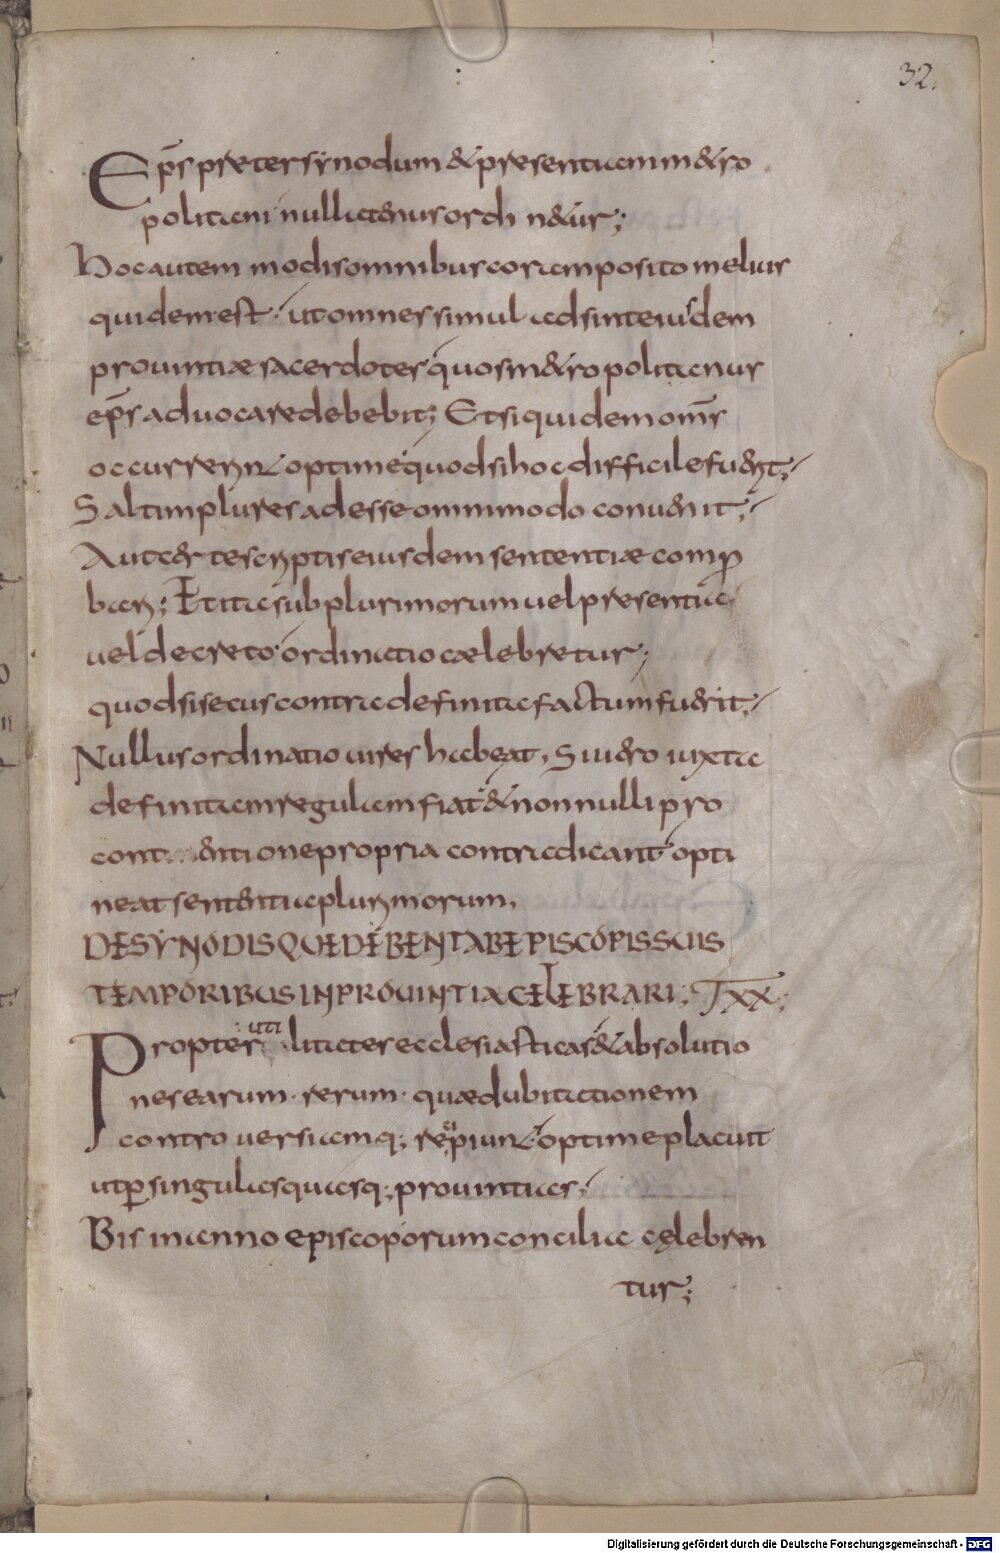 32.
Ep̄s preter synodum & presentiam m&ro
politani nullatenus ordin&ur;
Hoc autem modis omnibus coram posito melius
quidem est. ut omnes simul adsint eiusdem
prouintiæ sacerdotes quos m&ropolitanus
ep̄s aduocare debebit; Et si quidem om̄s
occurrerint optime quod si hoc difficile fuerit;
Saltim plures adesse omnimodo conuenit;
Aut certe scriptis eiusdem sententiæ comp
bari; Et ita sub plurimorum uel presentia
uel decreto ordinatio cælebretur;
quod si secus contra definita factum fuerit;
Nullus ordinatio uires habeat, Si uero iuxta
definitam regulam fiat & nonnulli pro
contentione propria contradicant opti
neat sententia plurimorum,
DE SYNODIS QUE DEBENT AB EPISCOPIS SUIS
TEMPORIBUS IN PROUINTIA CELEBRARI; TXX;
Propter utilitates ecclesiasticas & absolutio
nes earum rerum quæ dubitationem
controuersiamq; recipiunt optime placuit
ut per singulas quasq; prouintias;
Bis in anno episcoporum concilia cęlebren
tur;
Digitalisierung gefördert durch die Deutsche Forschungsgemeinschaft - DFG